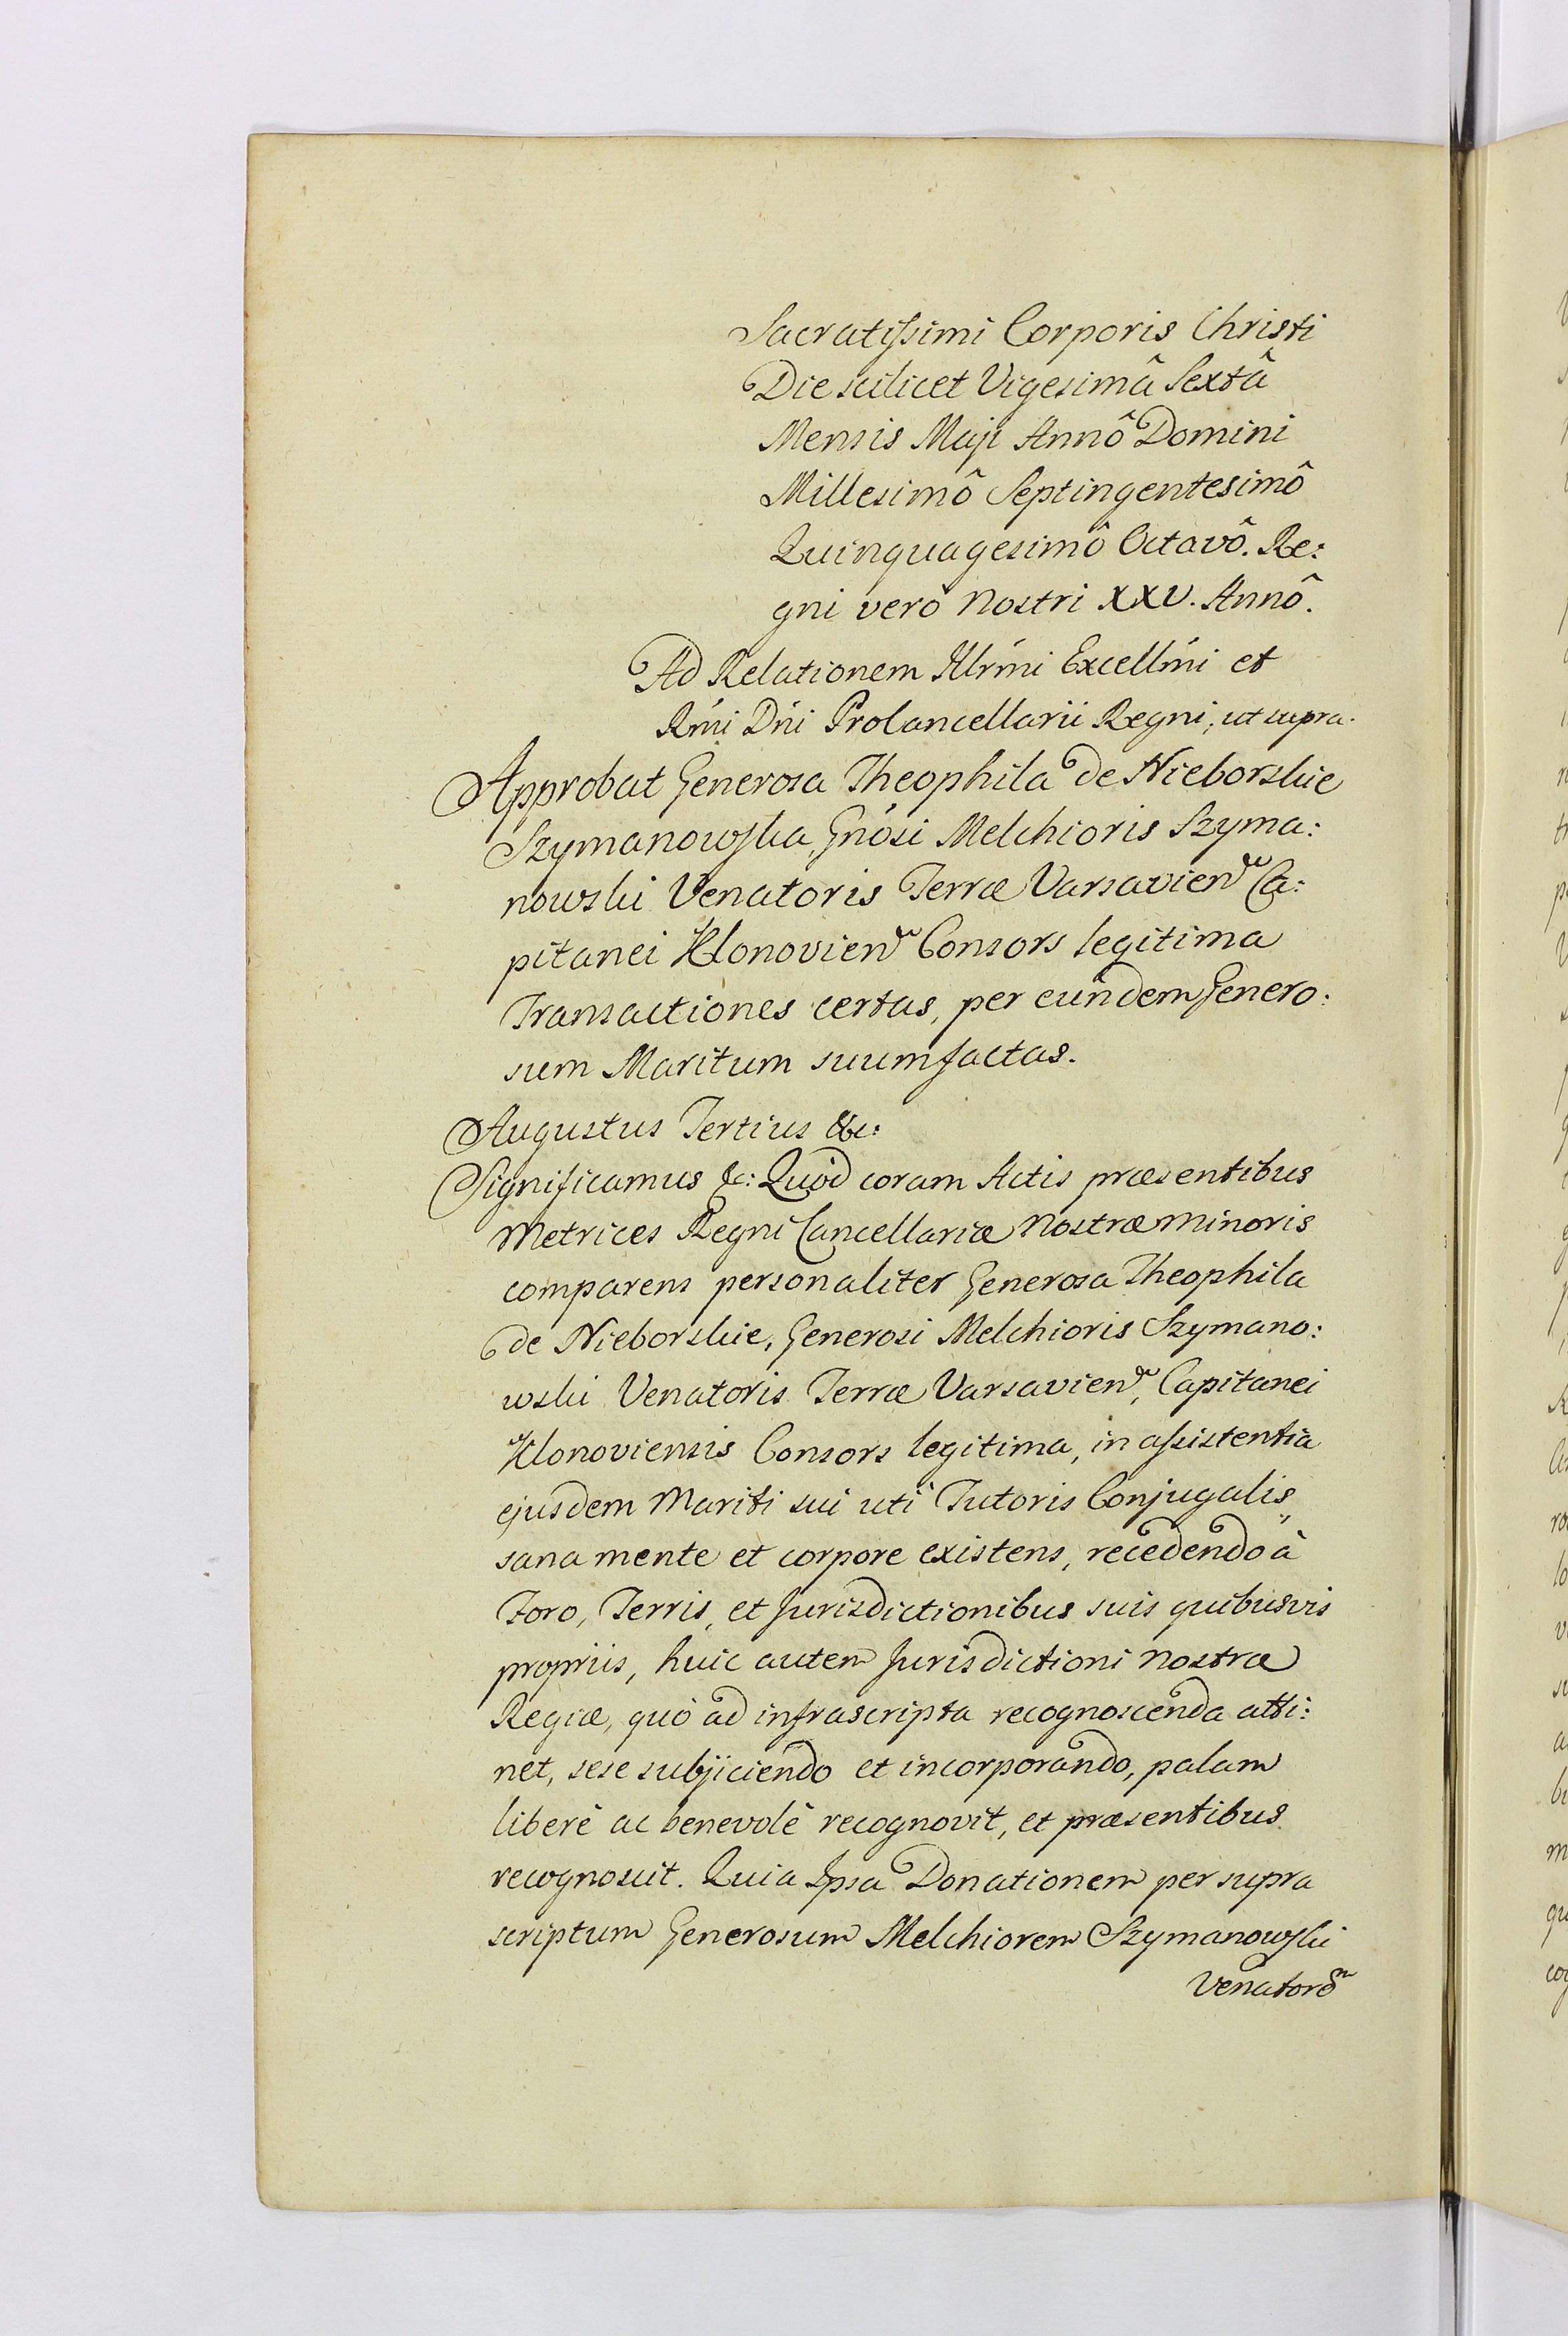 Sacratissimi Corporis Christi
Die scilicet Vigesimâ Sextâ
Mensis Maji Annô Domini
Millesimô Septingentesimô
Quinquagesimô Octavô. Re:
gni verò Nostri XXV. Annô.
Ad Relationem Illr̃mi Excellm̃i et
Rm̃i Dñi ProCancellarii Regni, ut supra.
Approbat Generosa Theophila de Nieborskie
Szymanowska, Gnősi Melchioris Szyma:
nowski Venatoris Terræ Varsavien Ca:
pitanei Klonovien Consors legitima
Transactiones certas, per eundem Genero:
sum Maritum suum factas.
Augustus Tertius &c:
Significamus &c: Quòd coram Actis præsentibus
Metrices Regni Cancellariæ Nostræ Minoris
comparens personaliter Generosa Theophila
de Nieborskie, Generosi Melchioris Szymano:
wski Venatoris Terræ Varsavien, Capitanei
Klonoviensis Consors legitima, in assistentia
ejusdem Mariti sui uti Tutoris Conjugalis,
sana mente et corpore existens, recedendo à
Foro, Terris, et Jurisdictionibus suis quibusvis
propriis, huic autem Jurisdictioni Nostræ
Regiæ, quò ad infrascripta recognoscenda atti:
net, sese subjiciendo et incorporando, palam
liberè ac benevolè recognovit, et præsentibus
recognoscit. Quia Ipsa Donationem per supra
scriptum Generosum Melchiorem Szymanowski
Venatorem